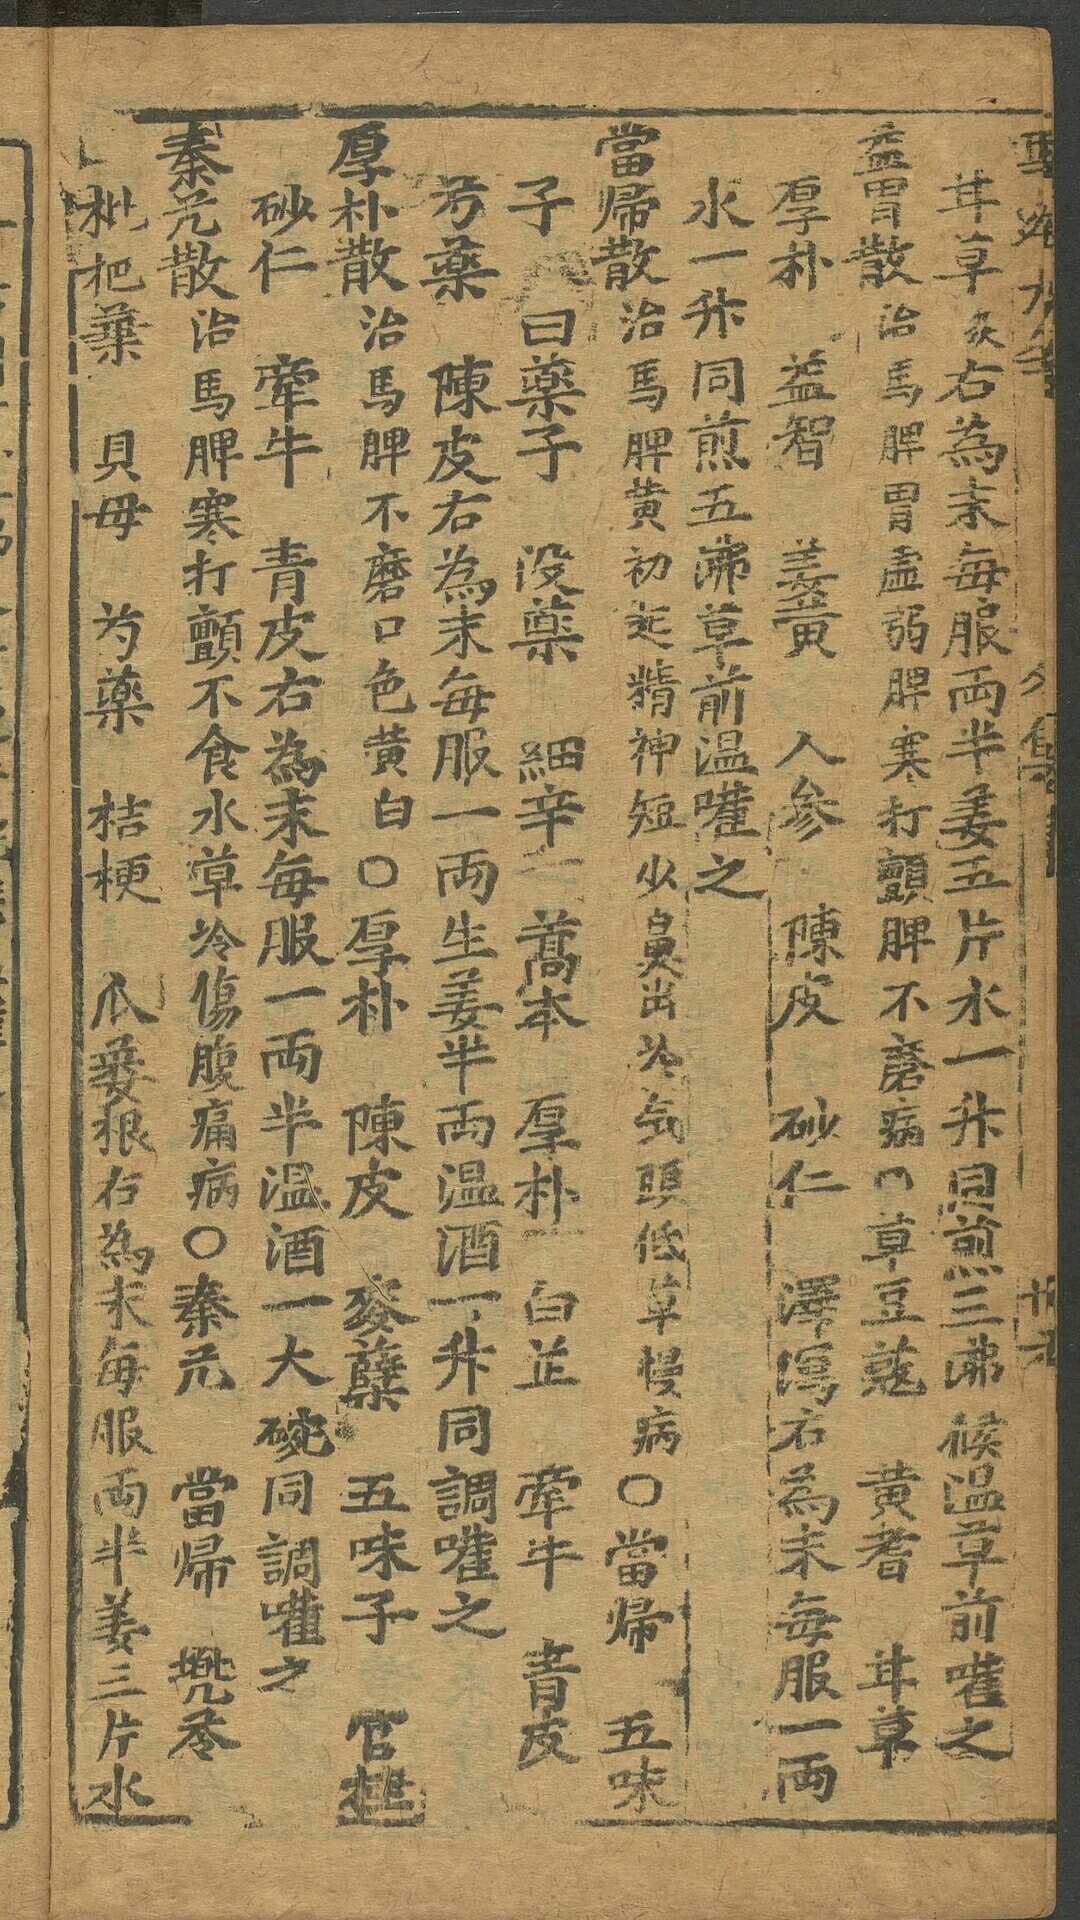 甘草炙右為末每服两半姜五片水一升同煎三沸候温草前嚾之
益胃散治馬脾胃虚弱脾寒打顫脾不磨病〇草豆蔻 黄耆 甘草
厚朴 益智 姜黄 人参 陳皮 砂仁 澤瀉右為末每服一两
水一升同煎五沸草前温嚾之
當帰散治馬脾黄初起精神短少鼻出冷気頭低草慢病〇當帰 五味
子 曰薬子 没薬 細辛 蒿本 厚朴 白芷 牽牛 青皮
芍薬 陳皮右為末每服一両生姜半両温酒一升同調嚾之
厚朴散治馬脾不磨口色黄白〇厚朴 陳皮 麥蘖 五味子 官桂
砂仁 牽牛 青皮右為末每服一両半温酒一大碗同調嚾之
秦艽散治馬脾寒打顫不食水草冷傷腹痛病〇秦艽 當帰
枇杷葉 貝母 芍藥 桔梗 瓜蔞根右為末每服両半姜三片水